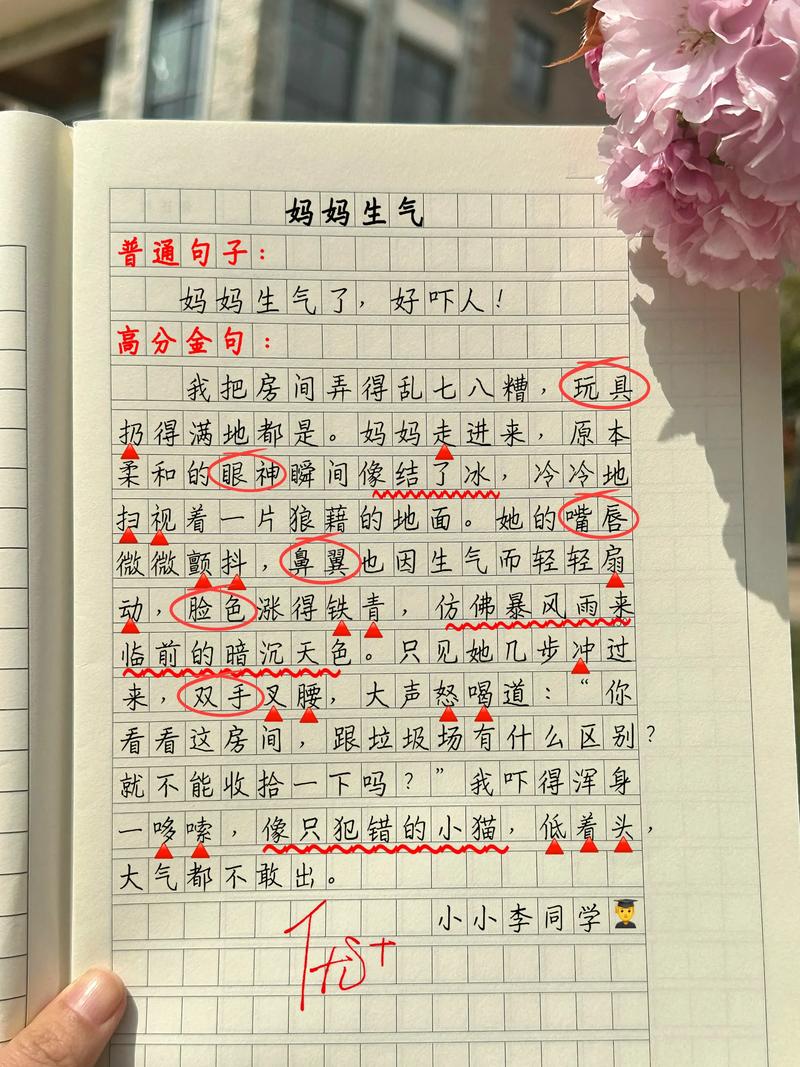 妈妈生气
普通句子：
妈妈生气了，好吓人！
高分金句：
我把房间弄得乱七八糟，玩具
扔得满地都是。妈妈走进来，原本
柔和的眼神瞬间像结了冰，冷冷地
扫视着一片狼藉的地面。她的嘴唇
微微颤抖，鼻翼也因生气而轻轻扇
动，脸色涨得铁青，仿佛暴风雨来
临前的暗沉天色。只见她几步冲过
来，双手叉腰，大声怒喝道：“你
看看这房间，跟垃圾场有什么区别？
就不能收拾一下吗？”我吓得浑身
一哆嗦，像只犯错的小猫，低着头，
大气都不敢出。
小小李同学